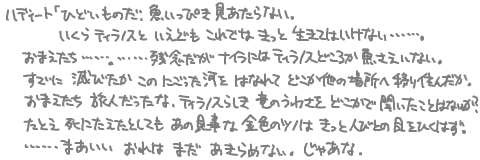 ハディート「ひどいものだ。魚いっぴき見あたらない。
いくらティラノスと いえども これでは きっと 生きてはいけない……。
おまえたち……。……残念だが ナイラには ティラノスどころか 魚さえいない。
すでに 滅びたか この にごった河を はなれて どこか他の場所へ 移り住んだか。
おまえたち 旅人だったな。ティラノスらしき 竜のうわさを どこかで 聞いたことはないか?
たとえ 死にたえたとしても あの見事な 金色のツノは きっと人びとの 目をひくはず。
……まあいい おれは まだ あきらめない。じゃあな。